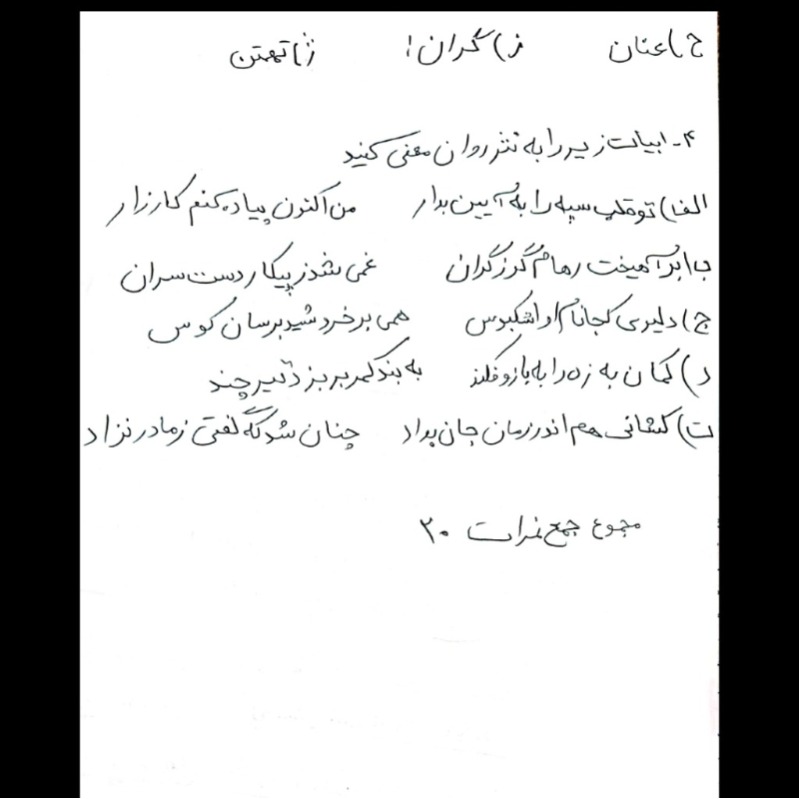 ح) عنان ز) گران: ژ) تهمتن
۴- ابیات زیر را به نثر روان معنی کنید
الف) تو قلب سپه را به آیین بدار من اکنون پیاده کنم کارزار
ب) برآمیخت رهام گرز گران غمی شد ز پیکار دست سران
ج) دلیری کجا نام او اشکبوس همی برخروشید برسان کوس
د) کمان به زه را به بازو فکند به بند کمر بر بزد تیر چند
ت) کشانی هم اندر زمان جان بداد چنان شد که گفتی ز مادر نزاد
مجموع جمع نمرات ۲۰